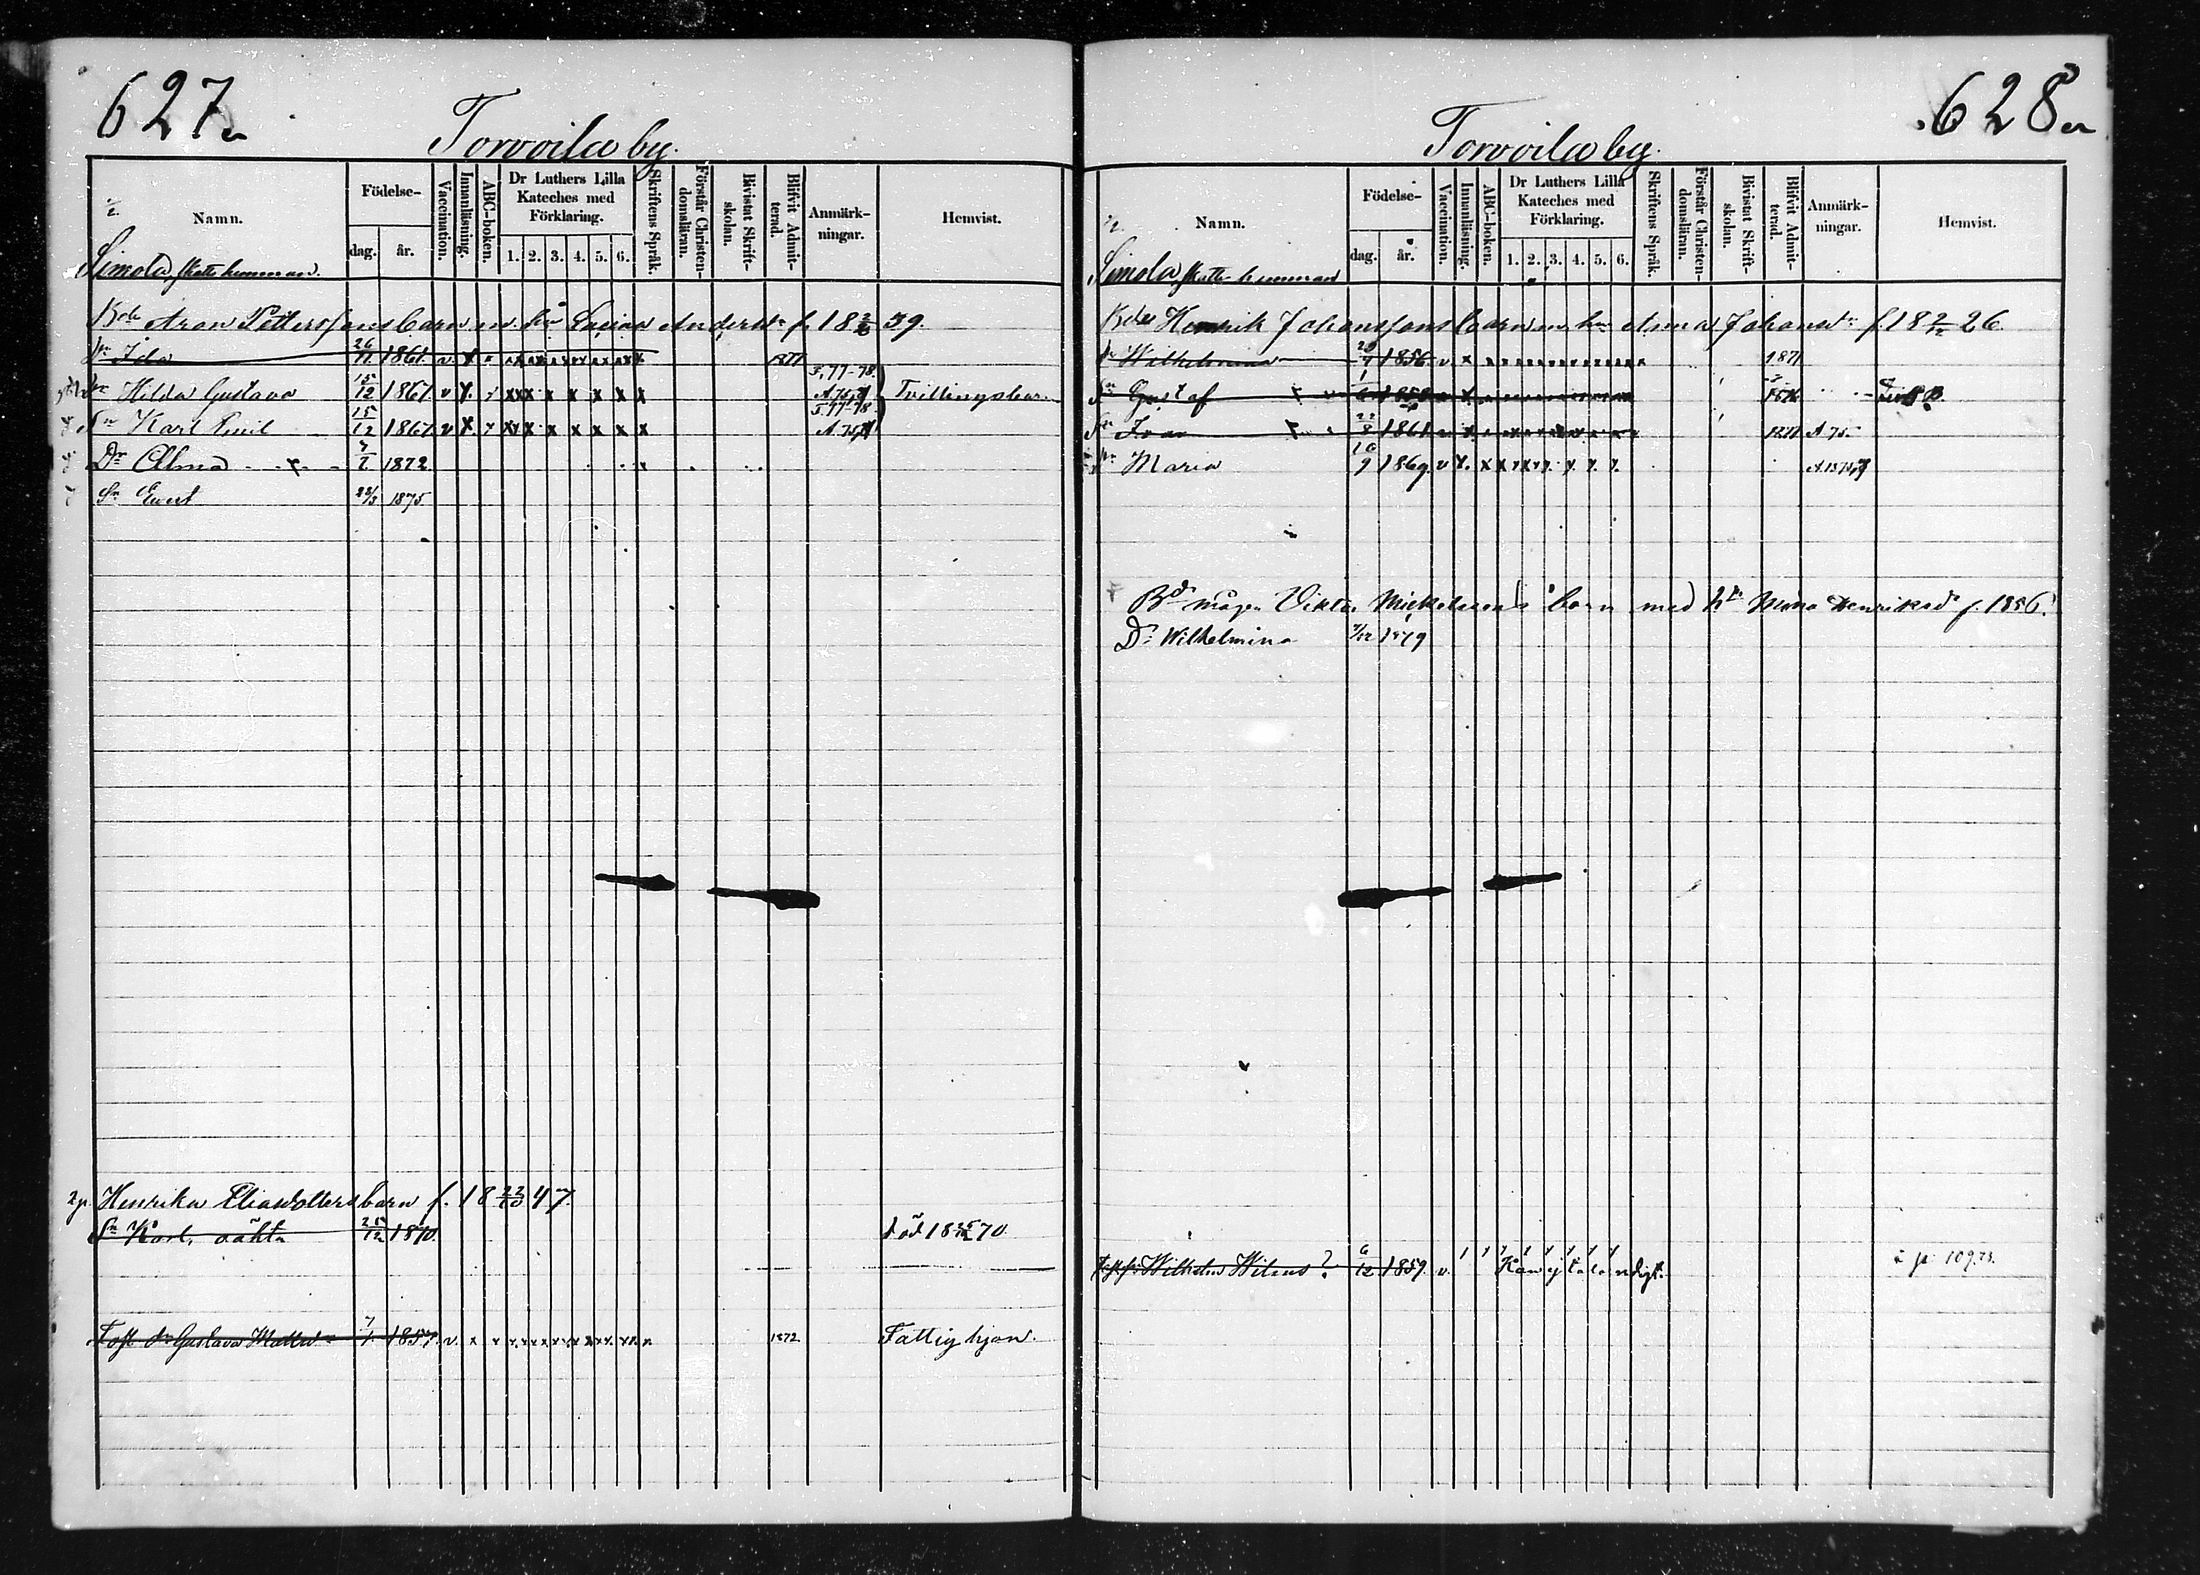 627
Torvoila by.
Namn.
Födelse-
dag.
år.
Vaccination.
Innanläsning.
ABC-boken.
Dr Luthers Lilla Kateches med Förklaring.
1. 2. 3. 4. 5. 6.
Skriftens Språk.
Förstår Christendomsläran.
Bivistat Skriftskolan.
Blifvit Admitterad.
Anmärkningar.
Hemvist.
Simola skatte hemman.
Aron Pettersons barn m. hu Anders dr f. 18 59.
Dr Ida 26/11 1861. v. x 1877
Dr Hilda Gustava 15/12 1867 v x. x x x x x x x x F, 77-78. A 75, Tvillingsbarn
Sn Karl Emil 15/12 1867 v x. x x x x x x x x F. 77-78 A 75,
Dr Alma 1872
Sn Evert 1875.
2 p. Henrika Eliasdotters barn f. 18 22/10 47.
Sn Karl, oäkta 25/12 1870. död 18 70.
Fost dr Gustava Matts dr 7/1 1857. v. x x 1872 Fattighjon.
628
Torvoila by.
Namn.
Födelse-
dag.
år.
Vaccination.
Innanläsning.
ABC-boken.
Dr Luthers Lilla Kateches med Förklaring.
1. 2. 3. 4. 5. 6.
Skriftens Språk.
Förstår Christendomsläran.
Bivistat Skriftskolan.
Blifvit Admitterad.
Anmärkningar.
Hemvist.
Simola skatte hemman
Henrik Johanssons barn m. hu Anna Johans dr f. 18 26.
Dr Wilhelmina 1856 v x 1871
Sn Gustaf
Sn Ivar 22/8 1861 1877 A 75.
Dr Maria 16/9 1869. v x. x x x x x. x. x. x.
Bds mågen Viktor Mickelssons barn med h Mina Henriksdr f. 1856.
Dr Wilhelmina 1879
Wilhelm Wilenius? 6/12 1859. v. Kan ej tala redigt. p. 109.73.